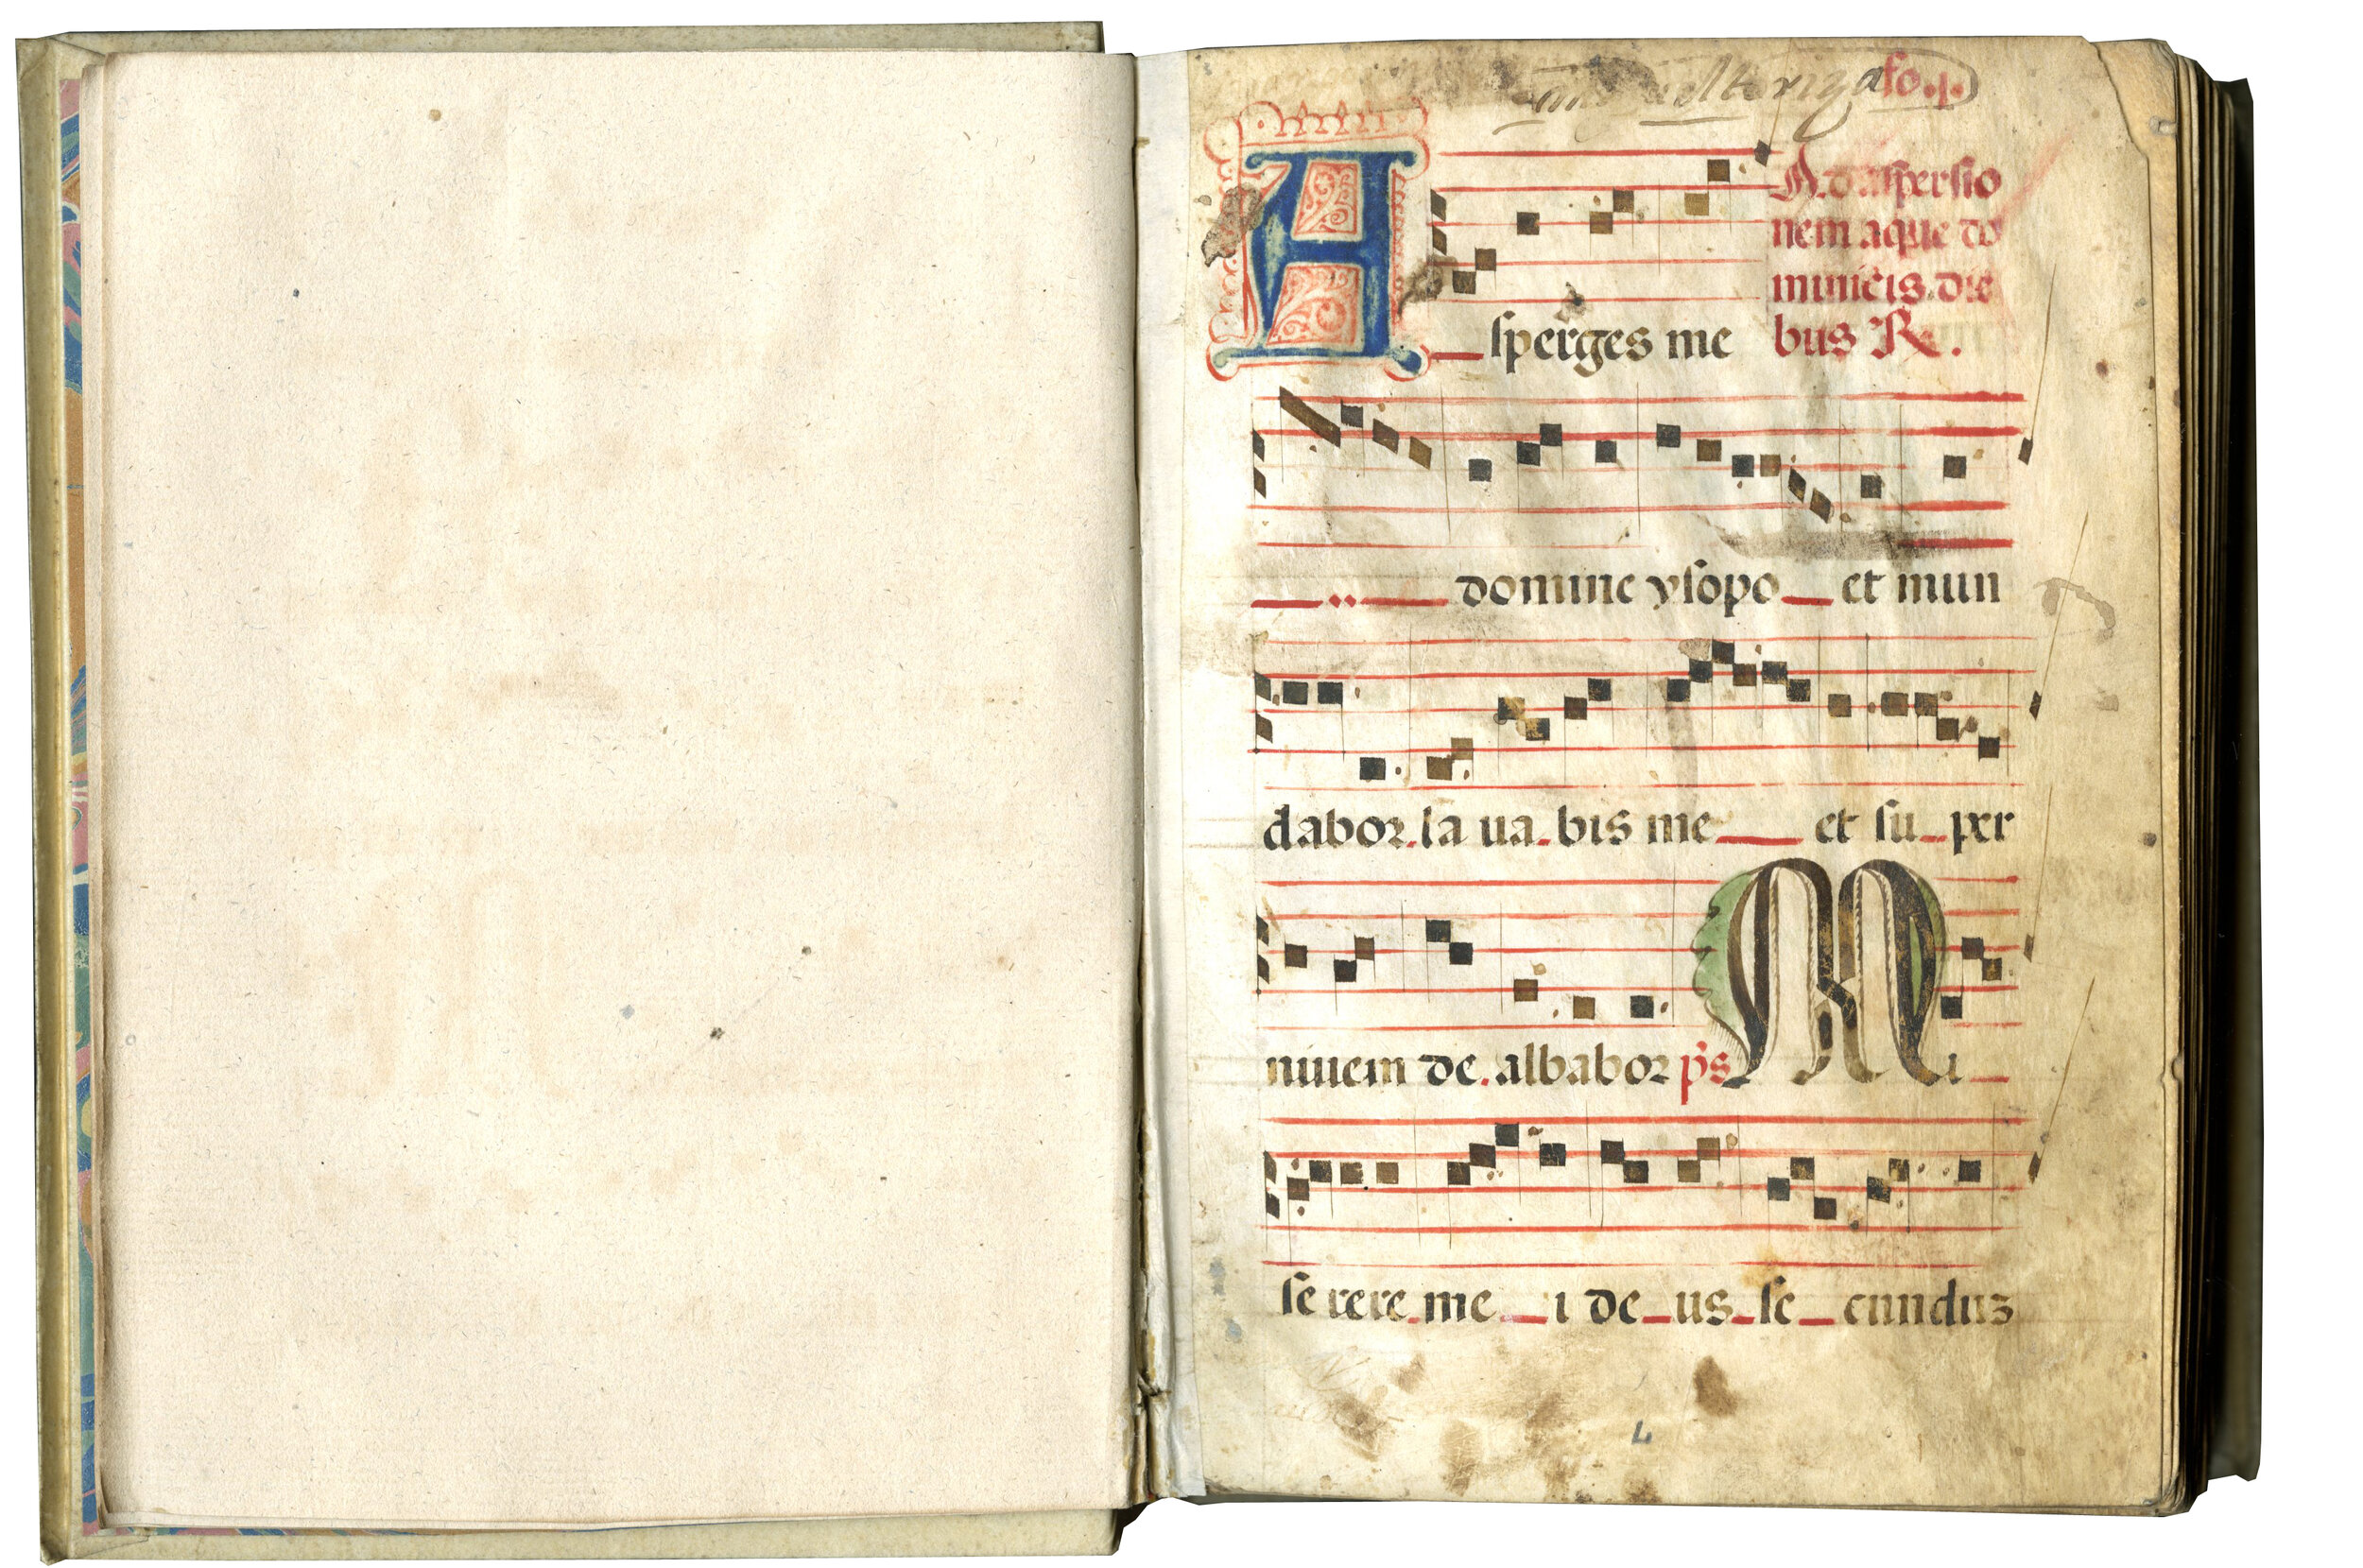 fo. j.
Ad aspersio
nem aque do
minicis die
bus R.
Asperges me
domine ysopo et mun
dabor. la ua. bis me et su per
niuem de. albabor ps Mi
se rere. me i de us se cundus